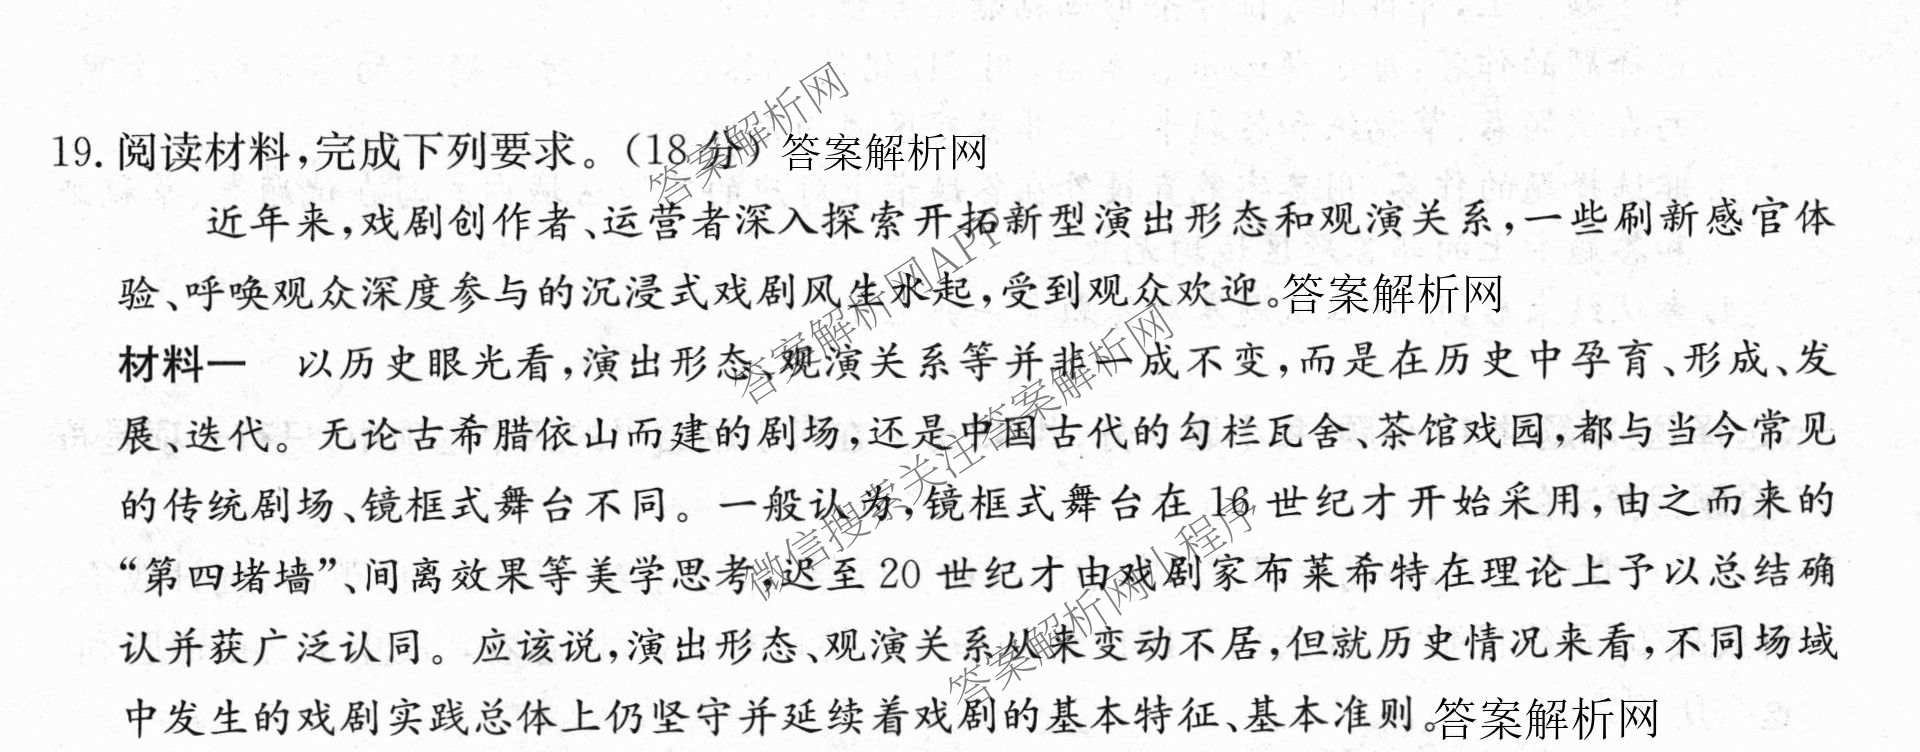 19. 阅读材料,完成下列要求。(18分) 答案解析网
近年来,戏剧创作者、运营者深入探索开拓新型演出形态和观演关系,一些刷新感官体
验、呼唤观众深度参与的沉浸式戏剧风生水起,受到观众欢迎。答案解析网
材料一 以历史眼光看,演出形态、观演关系等并非一成不变,而是在历史中孕育、形成、发
展、迭代。无论古希腊依山而建的剧场,还是中国古代的勾栏瓦舍、茶馆戏园,都与当今常见
的传统剧场、镜框式舞台不同。一般认为,镜框式舞台在16世纪才开始采用,由之而来的
“第四堵墙”、间离效果等美学思考,迟至20世纪才由戏剧家布莱希特在理论上予以总结确
认并获广泛认同。应该说,演出形态、观演关系从来变动不居,但就历史情况来看,不同场域
中发生的戏剧实践总体上仍坚守并延续着戏剧的基本特征、基本准则。答案解析网
答案解析网
答案解析网APP
微信搜索关注答案解析网
答案解析网小程序